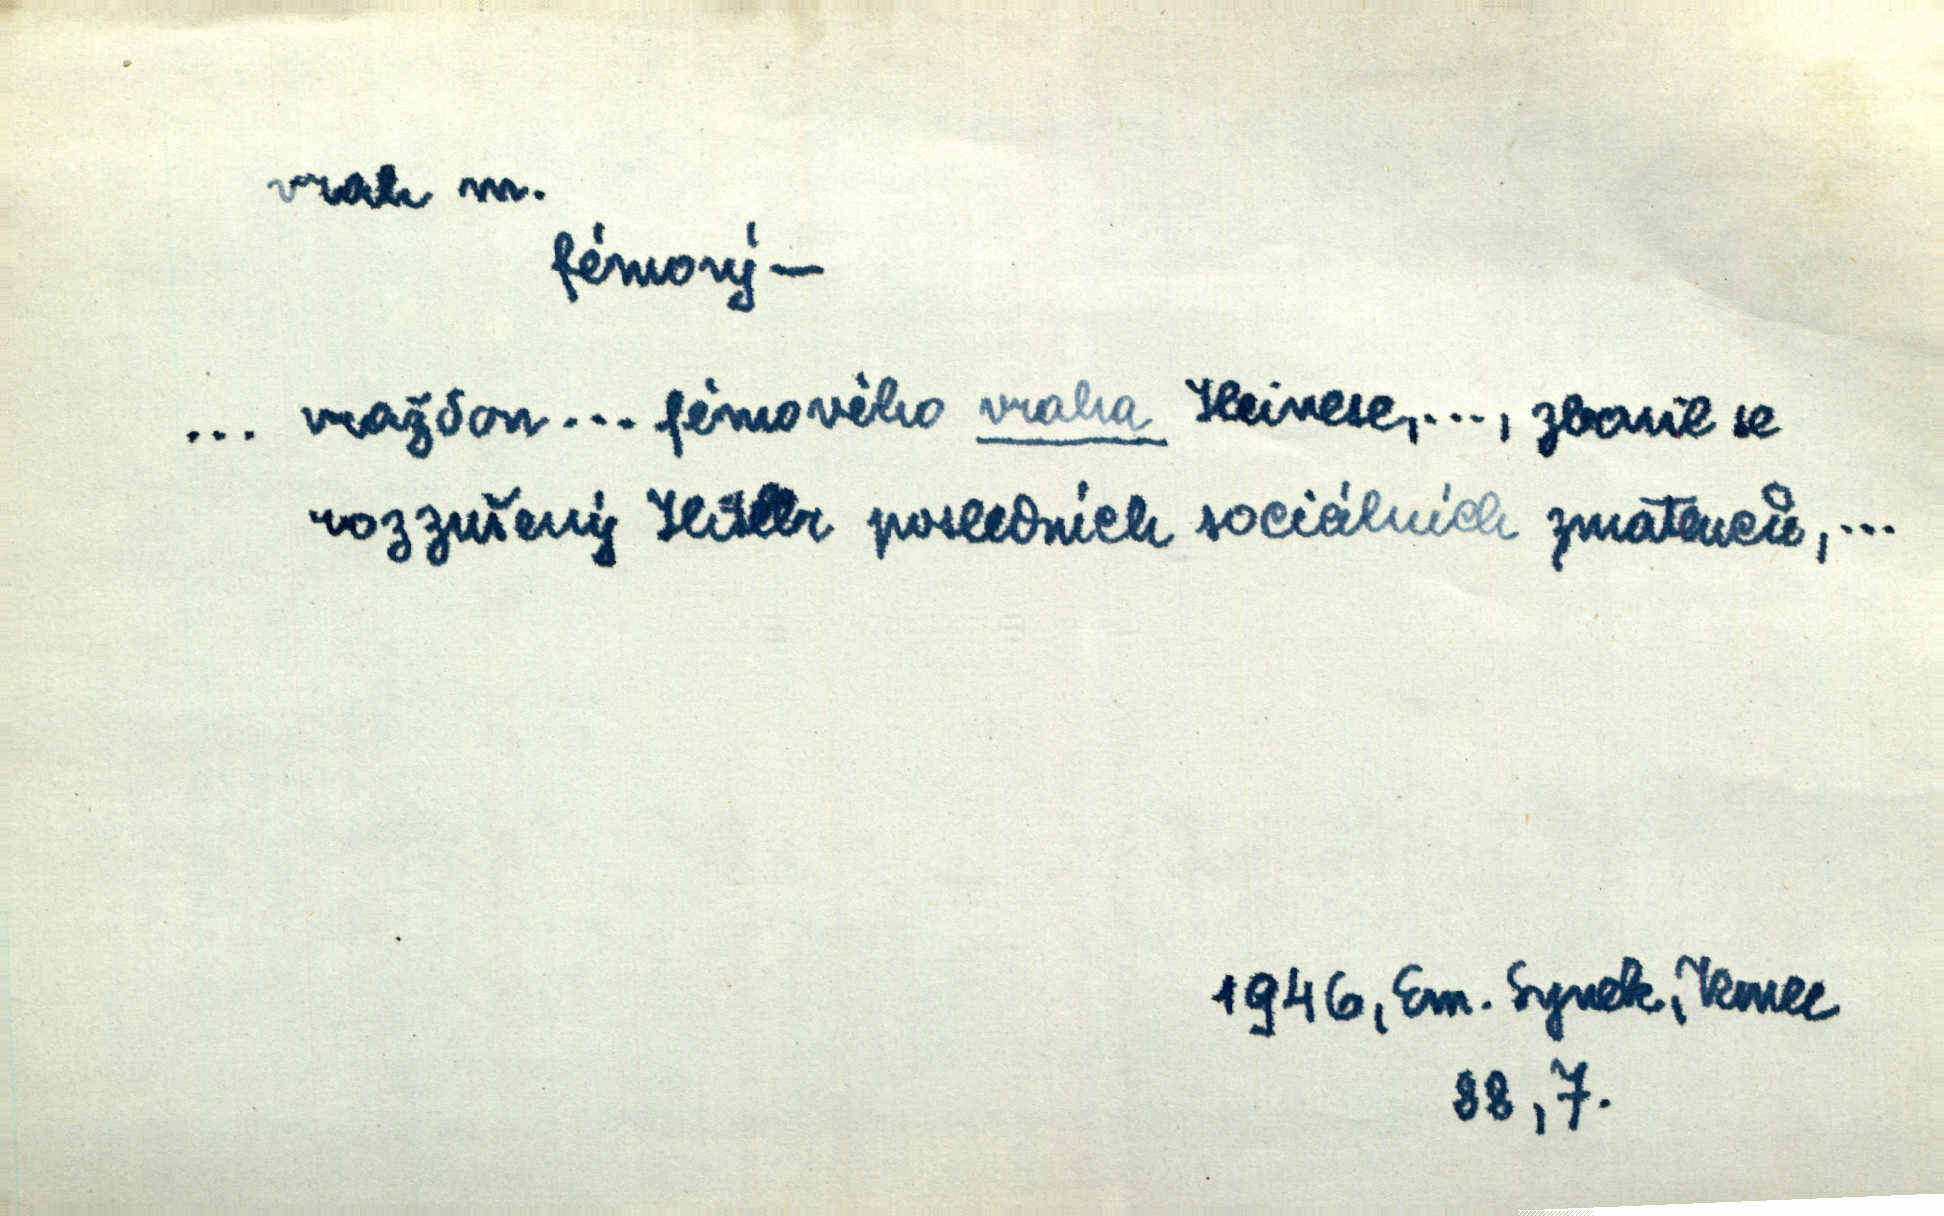 vrah m.
fémový —
... vraždou ... fémového vraha Heinese, ..., zbavil se
rozzuřený Hitler posledních sociálních zmatenců, ...
1946, Em. Synek,
88, 7.